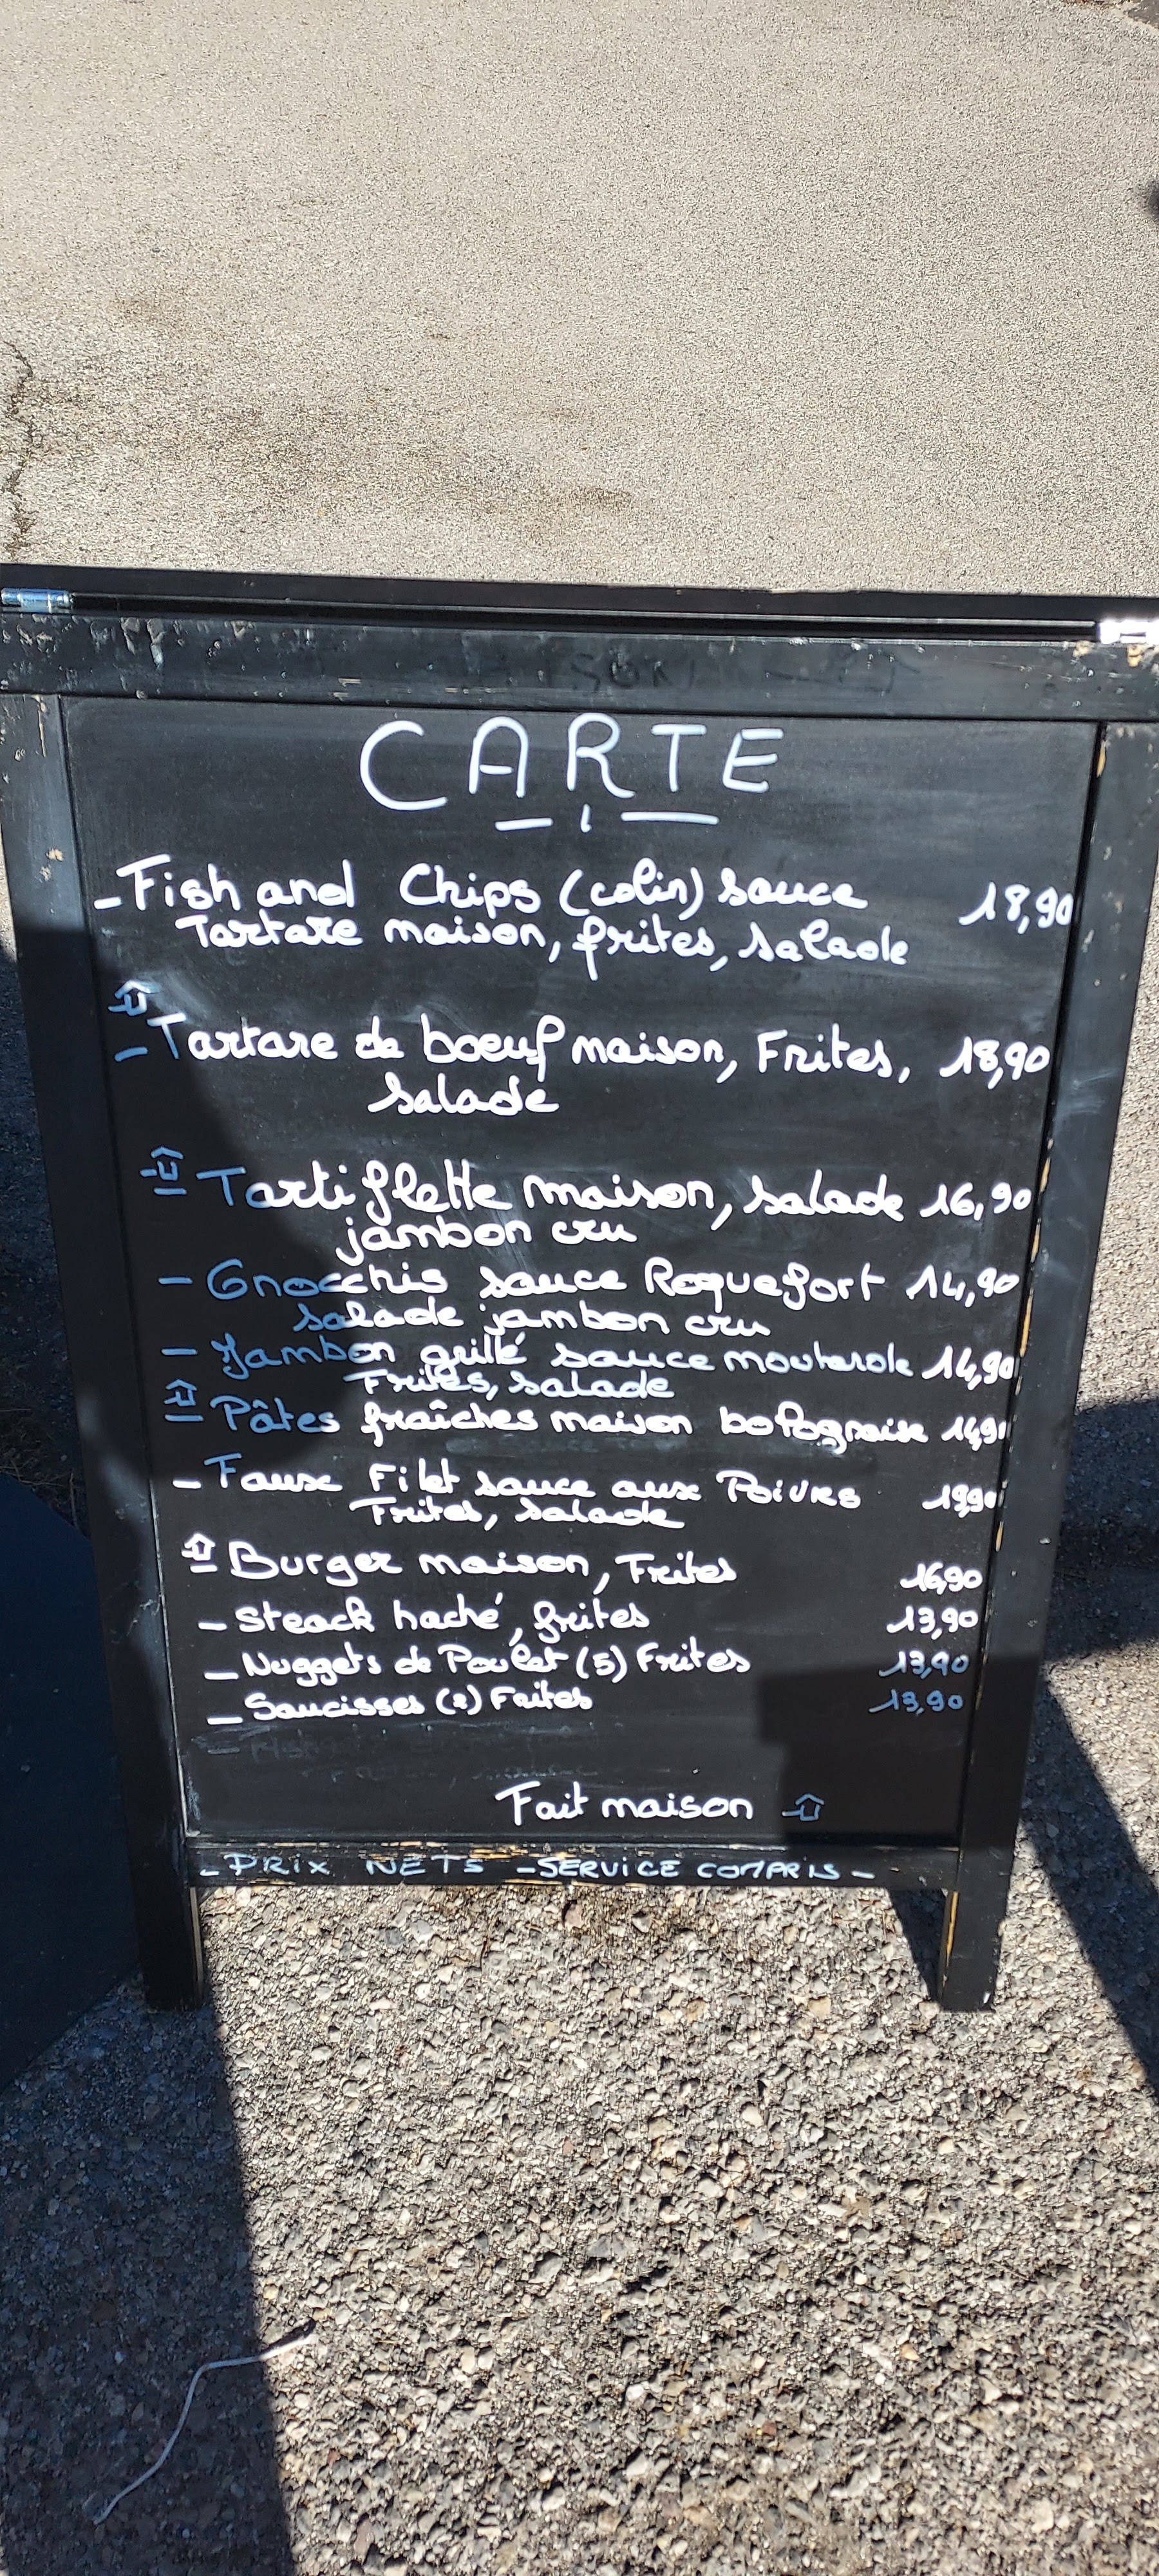 CARTE
- Fish and Chips (colin) sauce 18,90
Tartare maison, frites, salade
- Tartare de boeuf maison, Frites, 18,90
salade
- Tartiflette maison, salade 16,90
jambon cru
- Gnocchis sauce Roquefort 14,90
salade jambon cru
- Jambon grillé sauce mouterole 14,90
Frites, salade
- Pâtes fraîches maison bolognaise 14,90
- Faux Filet sauce aux Poivres 19,90
Frites, salade
- Burger maison, Frites 16,90
- Steack haché, frites 13,90
- Nuggets de Poulet (5) Frites 13,90
- Saucisses (2) Frites 13,90
Fait maison
- PRIX NETS - SERVICE COMPRIS -